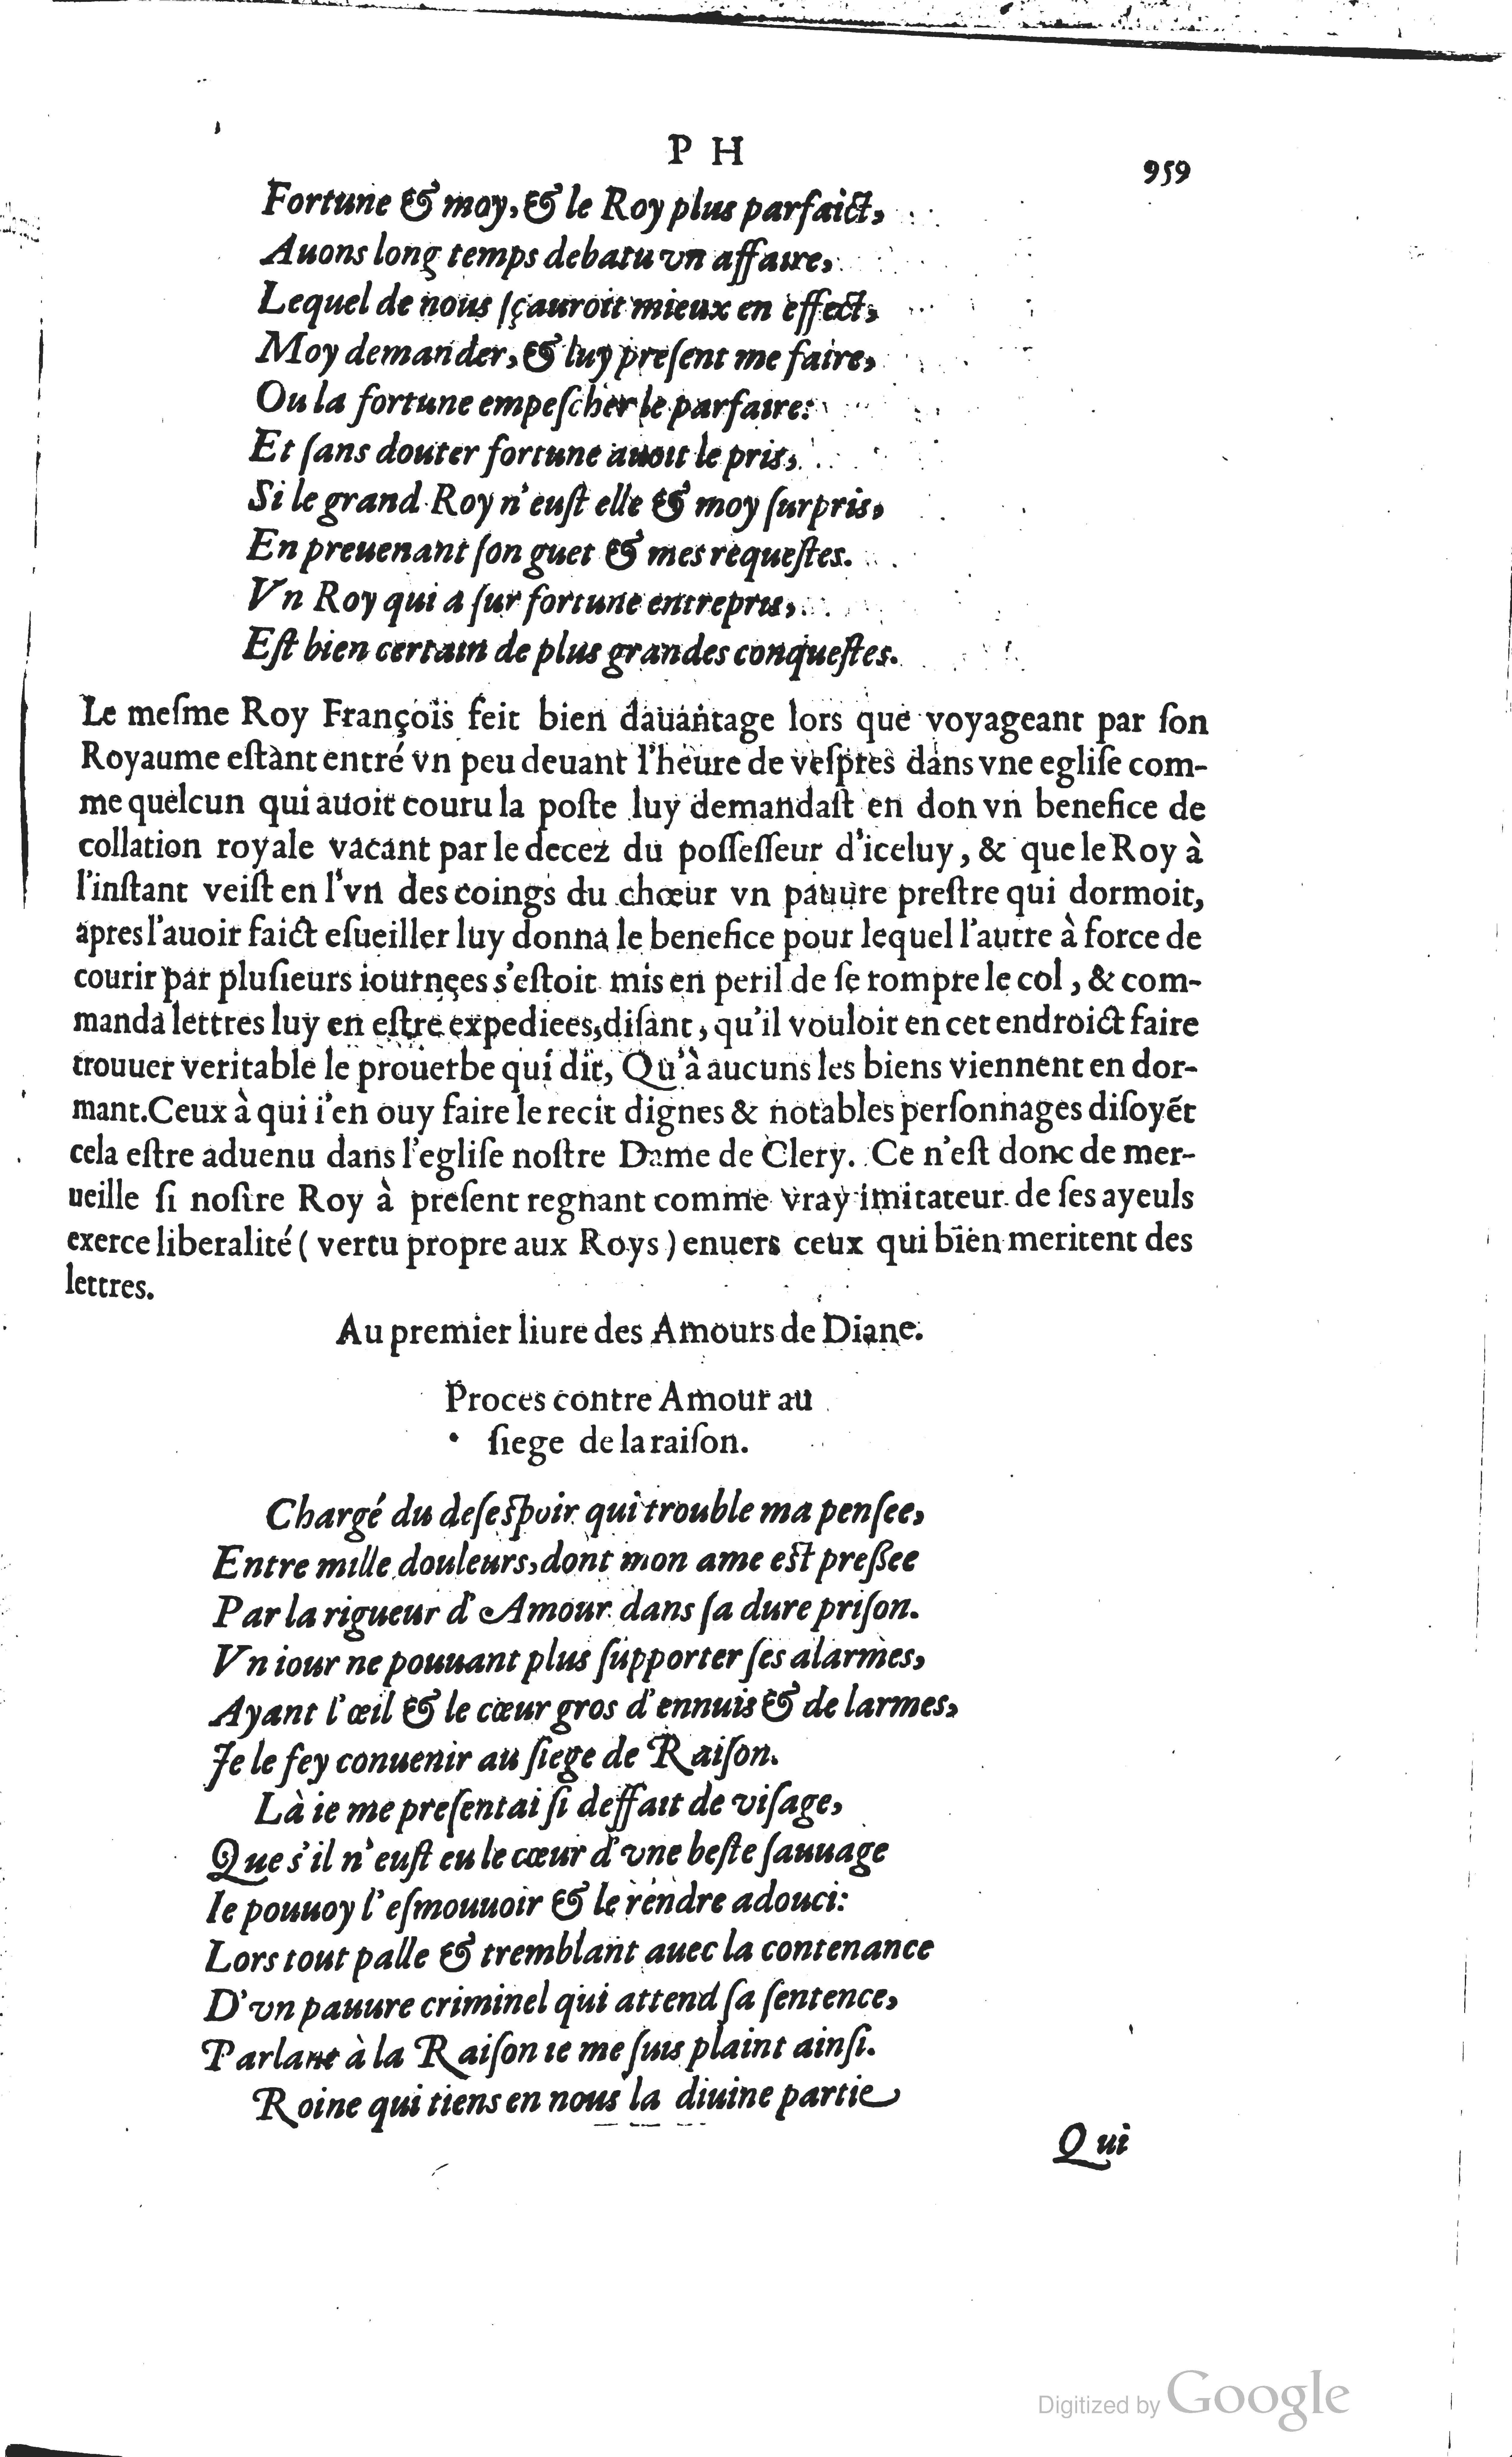 P H
959
Fortune & moy, & le Roy plus parfaict,
Auons long temps debatu vn affaire,
Lequel de nous sçauroit mieux en effect,
Moy demander, & luy preſent me faire,
Ou la fortune empeſcher le parfaire:
Et ſans douter fortune auoit le pris,
Si le grand Roy n'euſt elle & moy ſurpris,
En preuenant ſon guet & mes requeſtes.
Vn Roy qui a ſur fortune entrepris,
Eſt bien certain de plus grandes conqueſtes.
Le meſme Roy François feit bien dauantage lors que voyageant par ſon
Royaume eſtant entré vn peu deuant l'heure de veſpres dans vne egliſe com-
me quelcun qui auoit couru la poſte luy demandaſt en don vn benefice de
collation royale vacant par le decez du poſſeſſeur d'iceluy, & que le Roy à
l'inſtant veiſt en l'vn des coings du chœur vn pauure preſtre qui dormoit,
apres l'auoir faict eſueiller luy donna le benefice pour lequel l'autre à force de
courir par pluſieurs iournees s'eſtoit mis en peril de ſe rompre le col, & com-
manda lettres luy en eſtre expediees, diſant, qu'il vouloit en cet endroict faire
trouuer veritable le prouerbe qui dit, Qu'à aucuns les biens viennent en dor-
mant. Ceux à qui i'en ouy faire le recit dignes & notables perſonnages diſoyẽt
cela eſtre aduenu dans l'egliſe noſtre Dame de Clery. Ce n'eſt donc de mer-
ueille ſi noſtre Roy à preſent regnant comme vray imitateur de ſes ayeuls
exerce liberalité ( vertu propre aux Roys ) enuers ceux qui bien meritent des
lettres.
Au premier liure des Amours de Diane.
Proces contre Amour au
ſiege de la raiſon.
Chargé du deſeſpoir qui trouble ma penſee,
Entre mille douleurs, dont mon ame eſt preſſee
Par la rigueur d'Amour dans ſa dure priſon.
Vn iour ne pouuant plus ſupporter ſes alarmes,
Ayant l'œil & le cœur gros d'ennuis & de larmes,
Je le fey conuenir au ſiege de Raiſon.
Là ie me preſentai ſi deffait de viſage,
Que s'il n'euſt eu le cœur d'vne beſte ſauuage
Ie pouuoy l'eſmouuoir & le rendre adouci:
Lors tout palle & tremblant auec la contenance
D'vn pauure criminel qui attend ſa ſentence,
Parlant à la Raiſon ie me ſuis plaint ainſi.
Roine qui tiens en nous la diuine partie
Qui
Digitized by Google